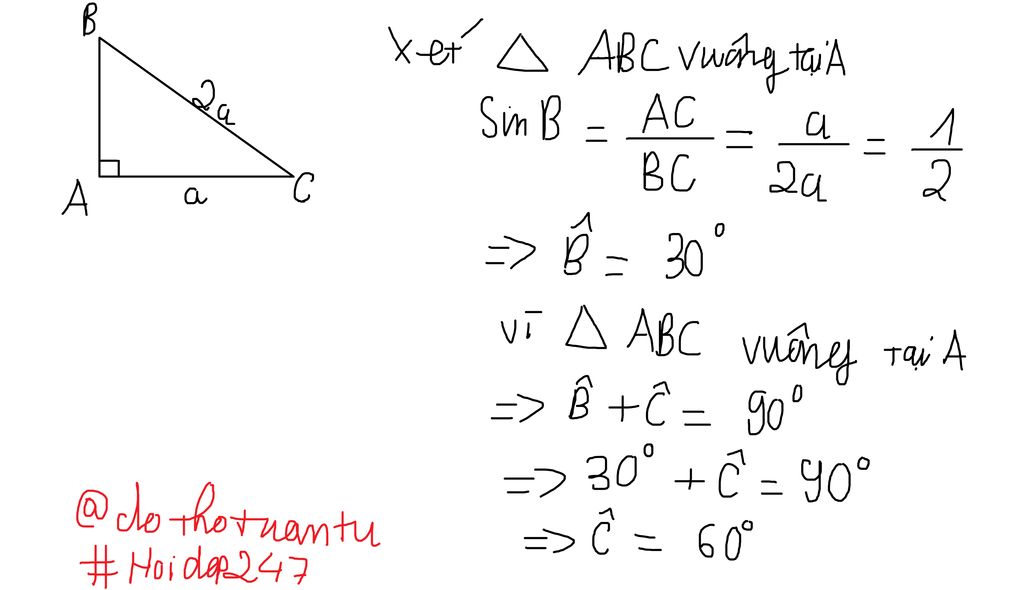 B
2a
A
a
C
Xét △ ABC vuông tại A
Sin B = AC/BC = a/2a = 1/2
=> B̂ = 30°
vì △ ABC vuông tại A
=> B̂ + Ĉ = 90°
=> 30° + Ĉ = 90°
=> Ĉ = 60°
@dothotuantu
#Hoidap247